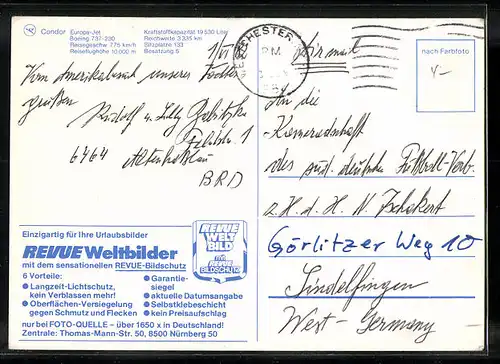 Condor Europa-Jet
Boeing 737-230
Reisegeschw 775 km/h
Reiseflughöhe 10 000 m
Kraftstoffkapazität 19 530 Liter
Reichweite 3 335 km
Sitzplätze 133
Besatzung 5
1/VI
CHESTER
PM
air mail
nach Farbfoto
Vom Amerikabesuch unserer Tochter
grüßen
Rudolf u. Lilly
Feldstr. 1
6464 Altenhaßlau
BRD
An die
Kameradschaft
des sud. deutschen Fußball-Verb.
z. H. d. H. N.
Görlitzer Weg 10
Sindelfingen
West-Germany
Einzigartig für Ihre Urlaubsbilder
REVUE Weltbilder
mit dem sensationellen REVUE-Bildschutz
6 Vorteile:
● Langzeit-Lichtschutz,
kein Verblassen mehr!
● Oberflächen-Versiegelung
gegen Schmutz und Flecken
● Garantie-
siegel
● aktuelle Datumsangabe
● Selbstklebeschicht
● kein Preisaufschlag
nur bei FOTO-QUELLE – über 1650 x in Deutschland!
Zentrale: Thomas-Mann-Str. 50, 8500 Nürnberg 50
REVUE
WELT
BILD
mit
REVUE
BILDSCHUTZ